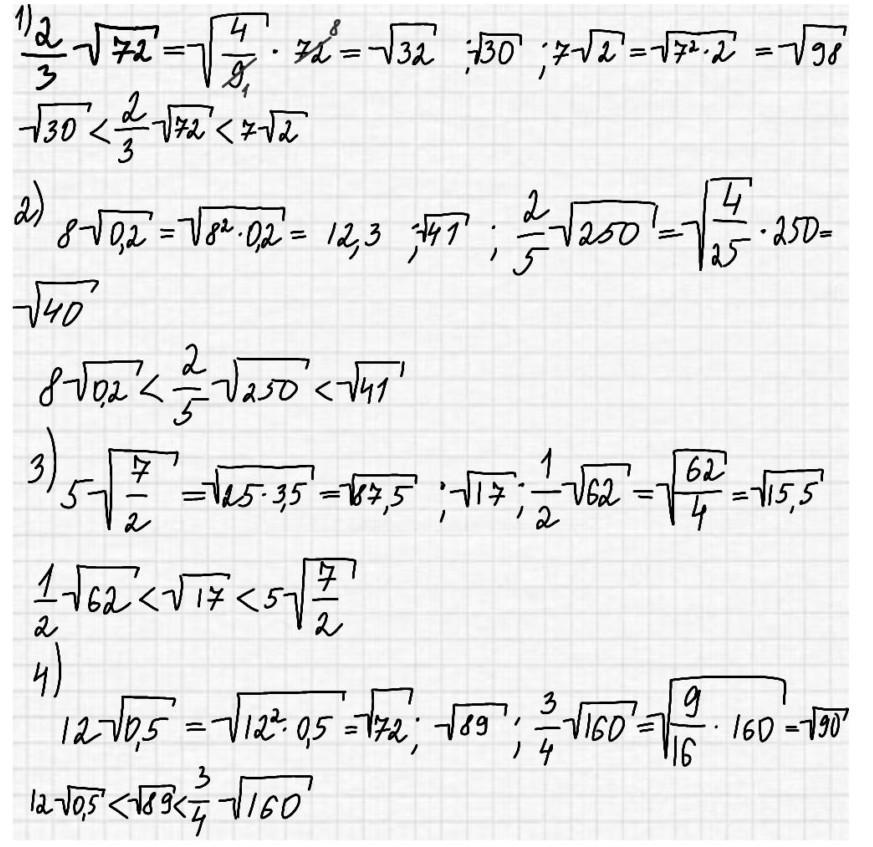 1) 2/3 √72 = √(4/9 · 72) = √32 ; √30 ; 7√2 = √(7² · 2) = √98
√30 < 2/3 √72 < 7√2
2) 8√0,2 = √(8² · 0,2) = 12,3 ; √41 ; 2/5 √250 = √(4/25 · 250) =
√40
8√0,2 < 2/5 √250 < √41
3) 5√(7/2) = √(25 · 3,5) = √87,5 ; √17 ; 1/2 √62 = √(62/4) = √15,5
1/2 √62 < √17 < 5√(7/2)
4)
12√0,5 = √(12² · 0,5) = √72 ; √89 ; 3/4 √160 = √(9/16 · 160) = √90
12√0,5 < √89 < 3/4 √160